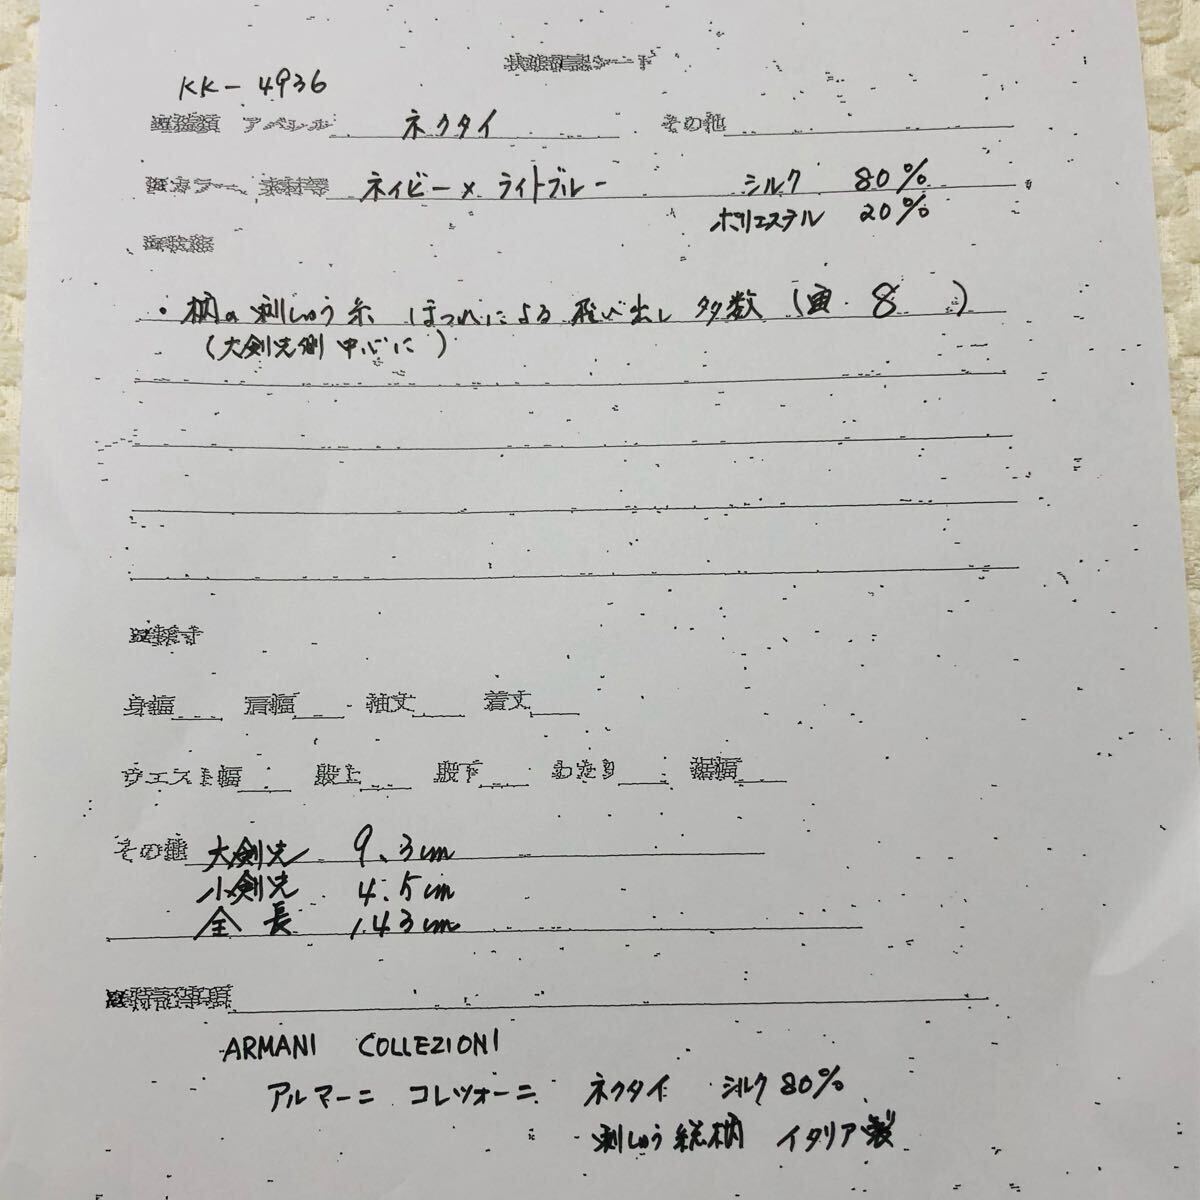 状態確認シート
KK-4936
アパレル ネクタイ その他
カラー、素材等 ネイビー×ライトブルー シルク 80%
ポリエステル 20%
・柄の刺しゅう糸 ほつれによる飛び出し 多数 (画・8 )
(大剣先側 中心に)
身幅 肩幅 袖丈 着丈
ウエスト幅 股上 股下 わたり 裾幅
その他 大剣先 9.3cm
小剣先 4.5cm
全長 143cm
特記事項
ARMANI COLLEZIONI
アルマーニ コレツォーニ ネクタイ シルク80%
刺しゅう総柄 イタリア製